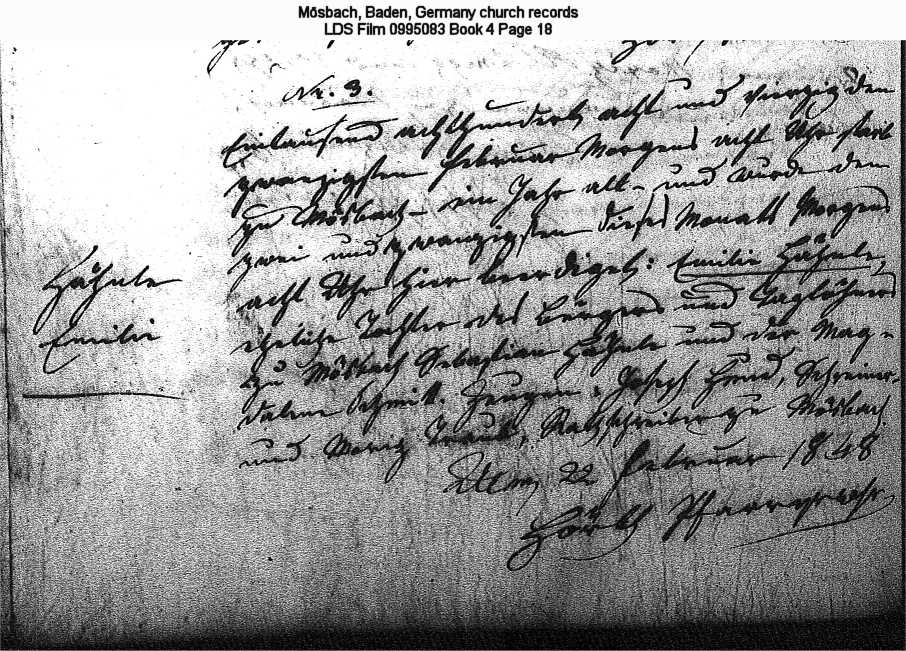 Mösbach, Baden, Germany church records
LDS Film 0995083 Book 4 Page 18
Nr. 3.
Eintausend achthundert acht und vierzig den
zwanzigsten Februar Morgens acht Uhr starb
zu Mösbach – ein Jahr alt – und wurde den
zwei und zwanzigsten dieses Monats Morgens
acht Uhr hier beerdigt: Emilie Hähnle,
eheliche Tochter des Bürgers und Taglöhners
zu Mösbach Sebastian Hähnle und der Mag-
dalena Schmitt. Zeugen: Joseph Hund, Schreiner
und Moriz Traub, Rathschreiber zu Mösbach
Den 22 Februar 1848
Pfarrverw.
Hähnle
Emilie